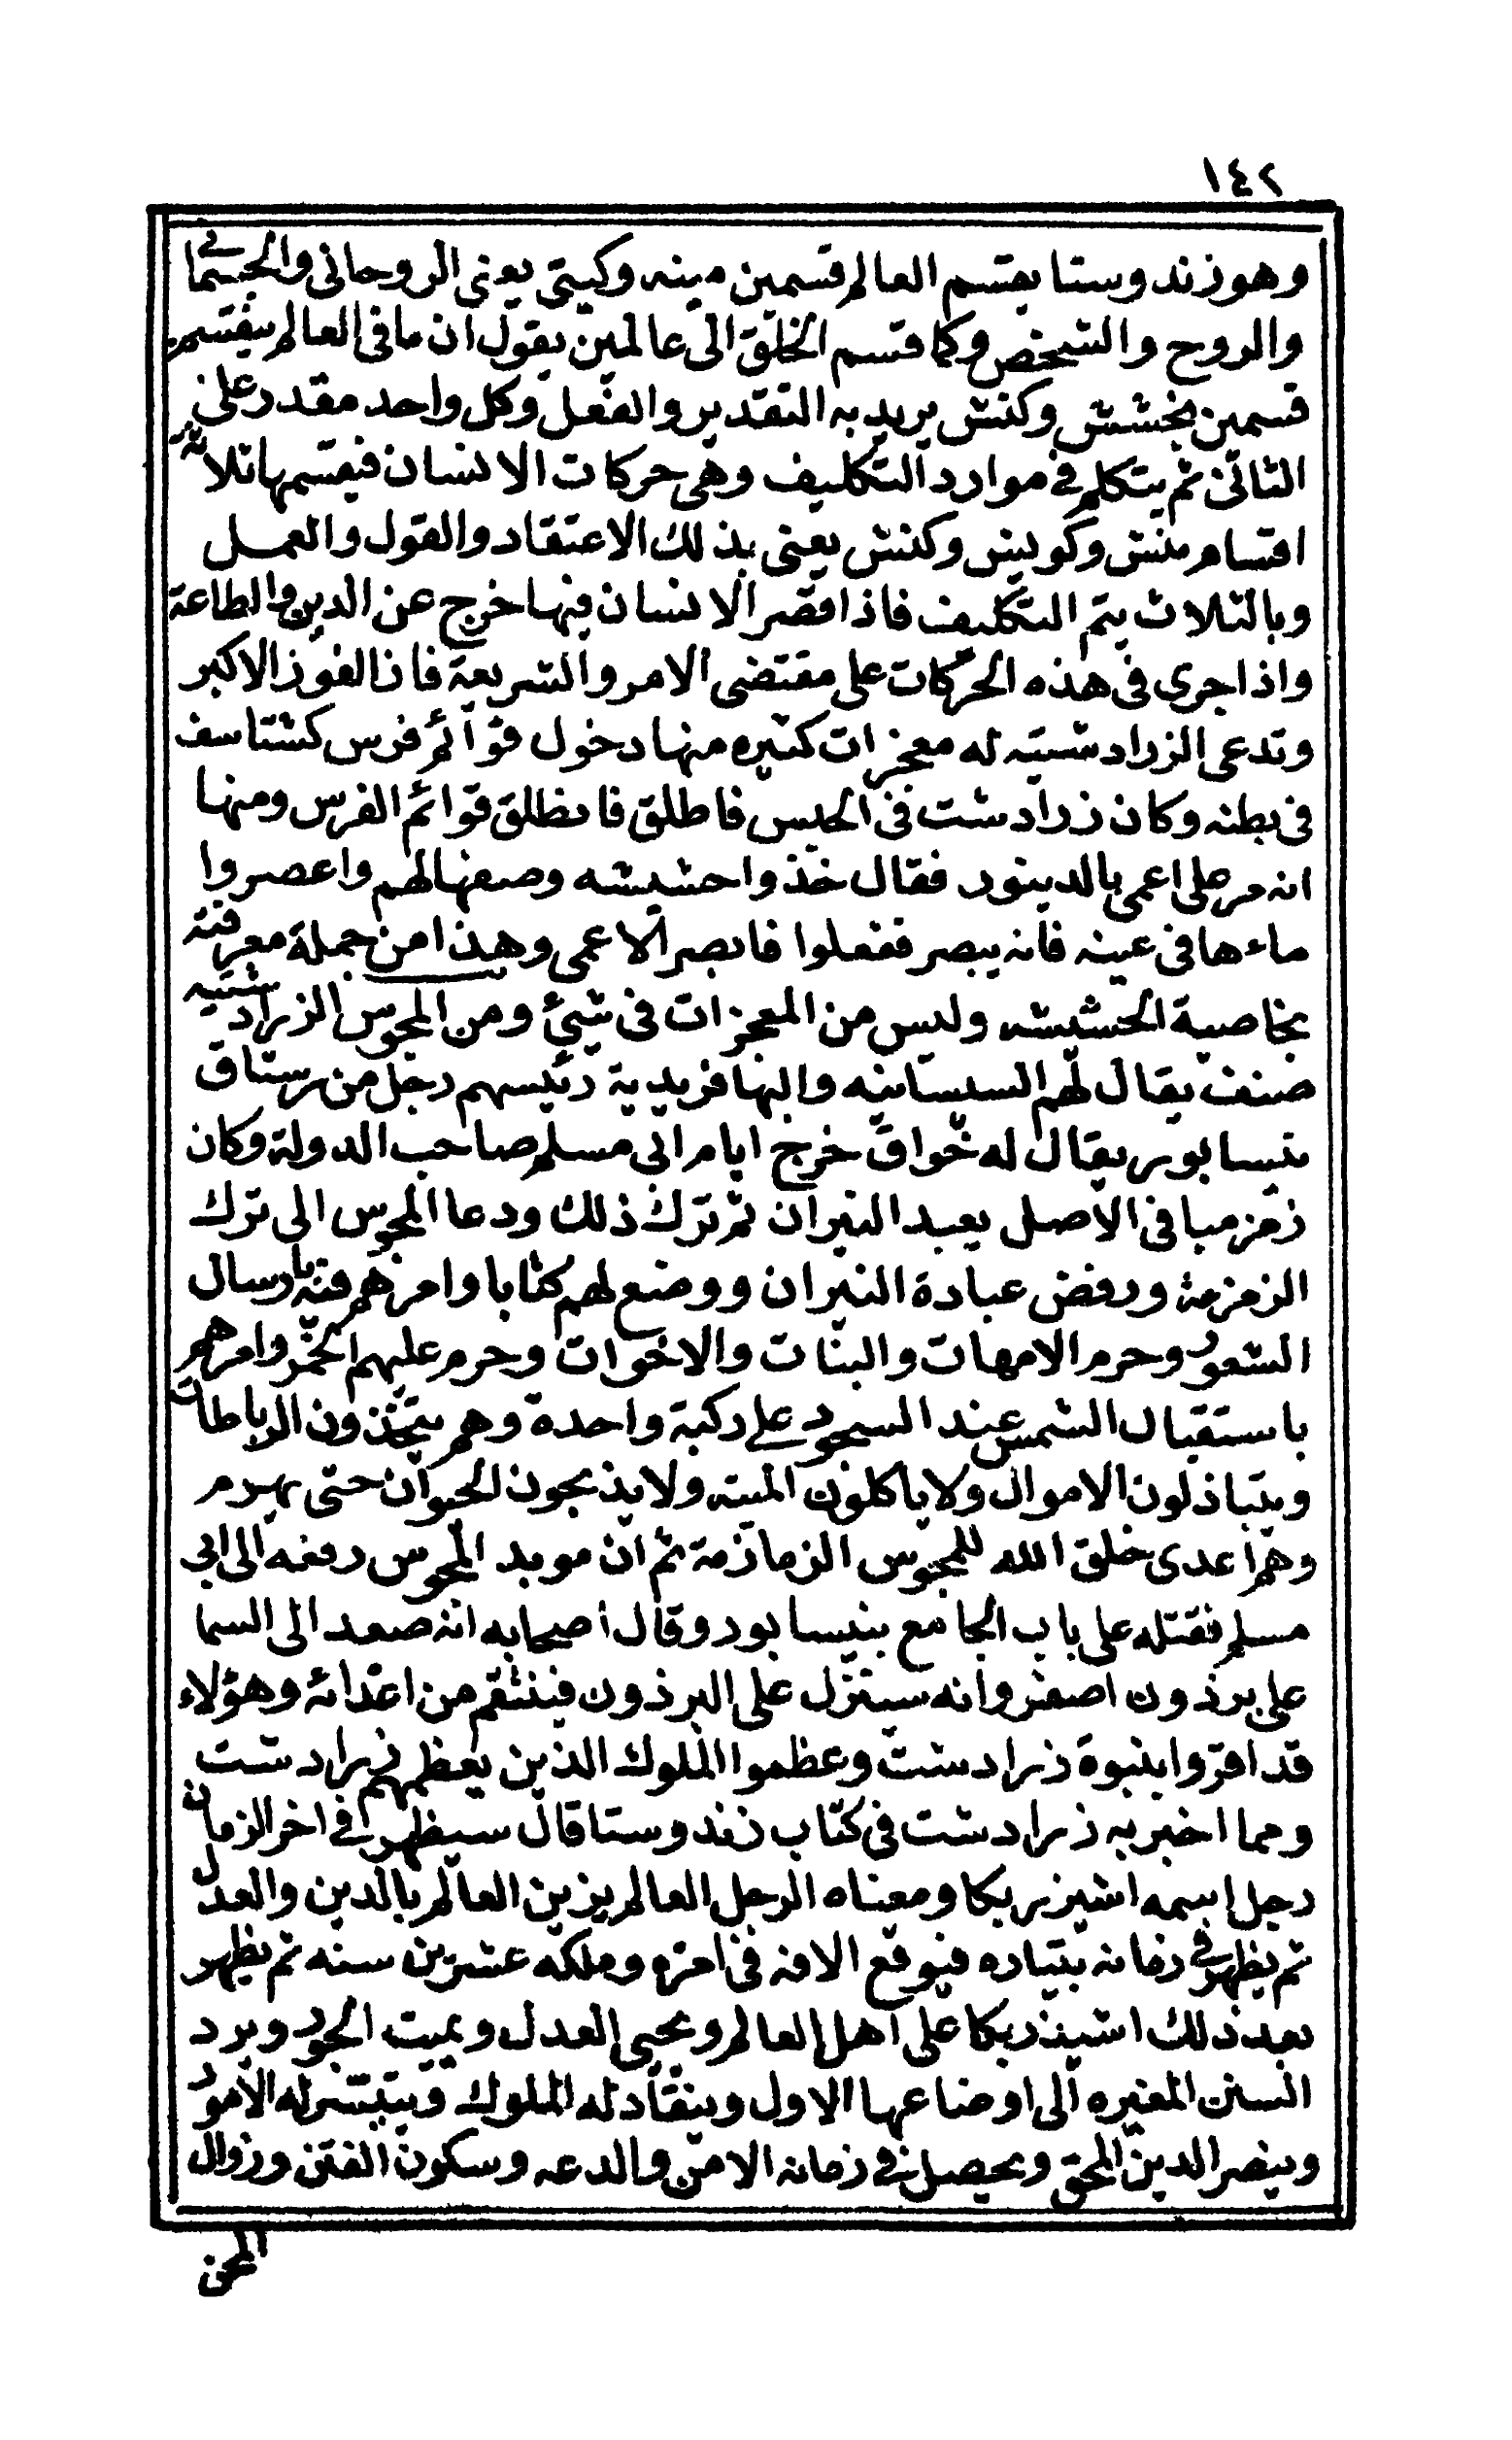 ١٤٢
وهو زند وستا يقسم العالم قسمين مينه وكيتى يعنى الروحانى والجسمانى
والروح والشخص وكما قسم الخلق الى عالمين يقول ان ما فى العالم ينقسم
قسمين بخشش وكنش يريد به التقدير والفعل وكل واحد مقدر على
الثانى ثم يتكلم فى موارد التكليف وهى حركات الانسان فيقسمها ثلاثة
اقسام منش وكويش وكنش يعنى بذلك الاعتقاد والقول والعمل
وبالثلاث يتم التكليف فاذا قصر الانسان فيها خرج عن الدين والطاعة
واذا جرى فى هذه الحركات على مقتضى الامر والشريعة فاز الفوز الاكبر
وتدعى الزرادشتيه له معجزات كثيره منها دخول قوائم فرس كشتاسف
فى بطنه وكان زرادشت فى الحبس فاطلق فانطلق قوائم الفرس ومنها
انه مر على اعمى بالدينور فقال خذوا حشيشه وصفها لهم واعصروا
ماءها فى عينه فانه يبصر ففعلوا فابصر الاعمى وهذا من جملة معرفته
بخاصية الحشيشه وليس من المعجزات فى شيئ ومن المجوس الزرادشتيه
صنف يقال لهم السيسانيه والبهافريدية رئيسهم رجل من رستاق
نيسابور يقال له خواف خرج ايام ابى مسلم صاحب الدولة وكان
زمزميا فى الاصل يعبد النيران ثم ترك ذلك ودعا المجوس الى ترك
الزمزمة ورفض عبادة النيران ووضع لهم كتابا وامرهم فيه بارسال
الشعور وحرم الامهات والبنات والاخوات وحرم عليهم الخمر وامرهم
باستقبال الشمس عند السجود على ركبة واحدة وهم يتخذون الرباطات
ويتباذلون الاموال ولا ياكلون الميته ولا يذبحون الحيوان حتى يهرم
وهم اعدى خلق الله للمجوس الزمازمة ثم ان موبد المجوس رفعه الى ابى
مسلم فقتله على باب الجامع بنيسابور وقال اصحابه انه صعد الى السما
على برذون اصفر وانه سينزل على البرذون فينتقم من اعدائه وهؤلاء
قد اقروا بنبوة زرادشت وعظموا الملوك الذين يعظمهم زرادشت
ومما اخبر به زرادشت فى كتاب زند وستا قال سيظهر فى اخر الزمان
رجل اسمه اشيزريكا ومعناه الرجل العالم يزين العالم بالدين والعدل
ثم يظهر فى زمانه بتياره فيوقع الافه فى امره وملكه عشرين سنه ثم يظهر
بعد ذلك اشيذريكا على اهل العالم ويحيى العدل ويميت الجور ويرد
السنن المغيره الى اوضاعها الاول وينقاد له الملوك ويتيسر له الامور
وينصر الدين المحق ويحصل فى زمانه الامن والدعه وسكون الفتن وزوال
المحن